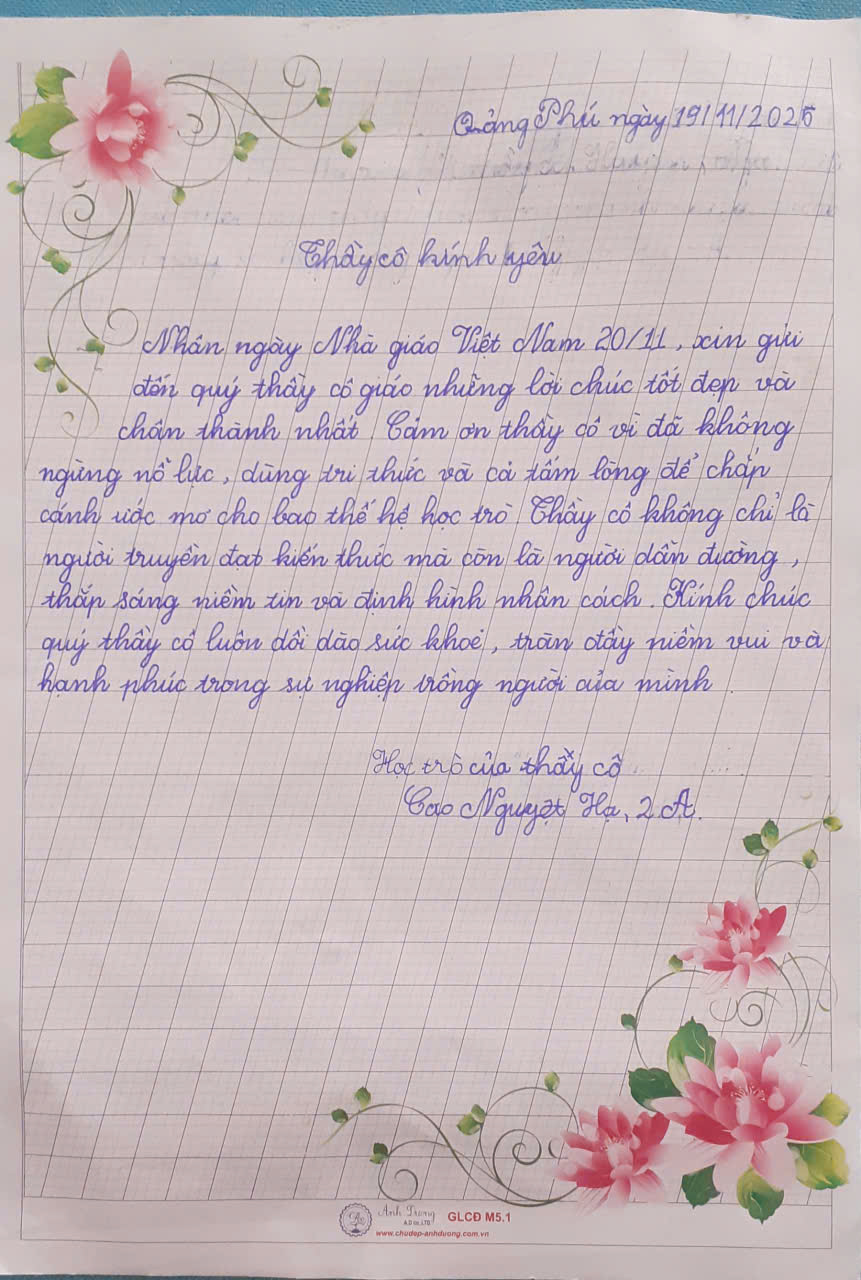 Quảng Phú ngày 19/11/2025
Thầy cô kính yêu
Nhân ngày Nhà giáo Việt Nam 20/11, xin gửi
đến quý thầy cô giáo những lời chúc tốt đẹp và
chân thành nhất. Cảm ơn thầy cô vì đã không
ngừng nỗ lực, dùng tri thức và cả tấm lòng để chắp
cánh ước mơ cho bao thế hệ học trò Thầy cô không chỉ là
người truyền đạt kiến thức mà còn là người dẫn đường,
thắp sáng niềm tin và định hình nhân cách. Kính chúc
quý thầy cô luôn dồi dào sức khoẻ, tràn đầy niềm vui và
hạnh phúc trong sự nghiệp trồng người của mình.
Học trò của thầy cô
Cao Nguyệt Hạ, 2A.
Anh Dương
A.D Co.,LTD
GLCĐ M5.1
www.chudep-anhduong.com.vn